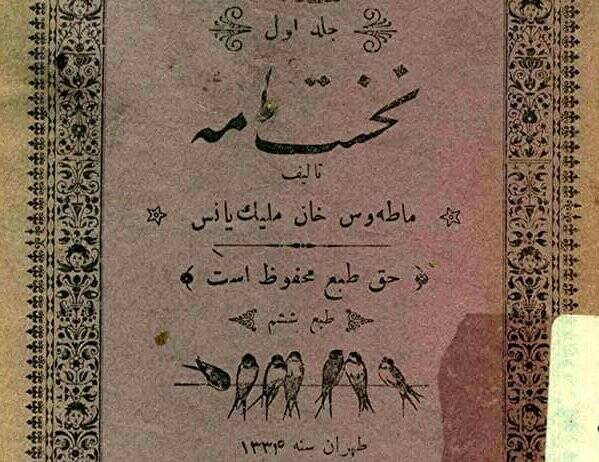 جلد اول
نخستنامه
تالیف
ماطه‌وس خان ملیك‌یانس
حق طبع محفوظ است
طبع ششم
طهران سنه ۱۳۳۴